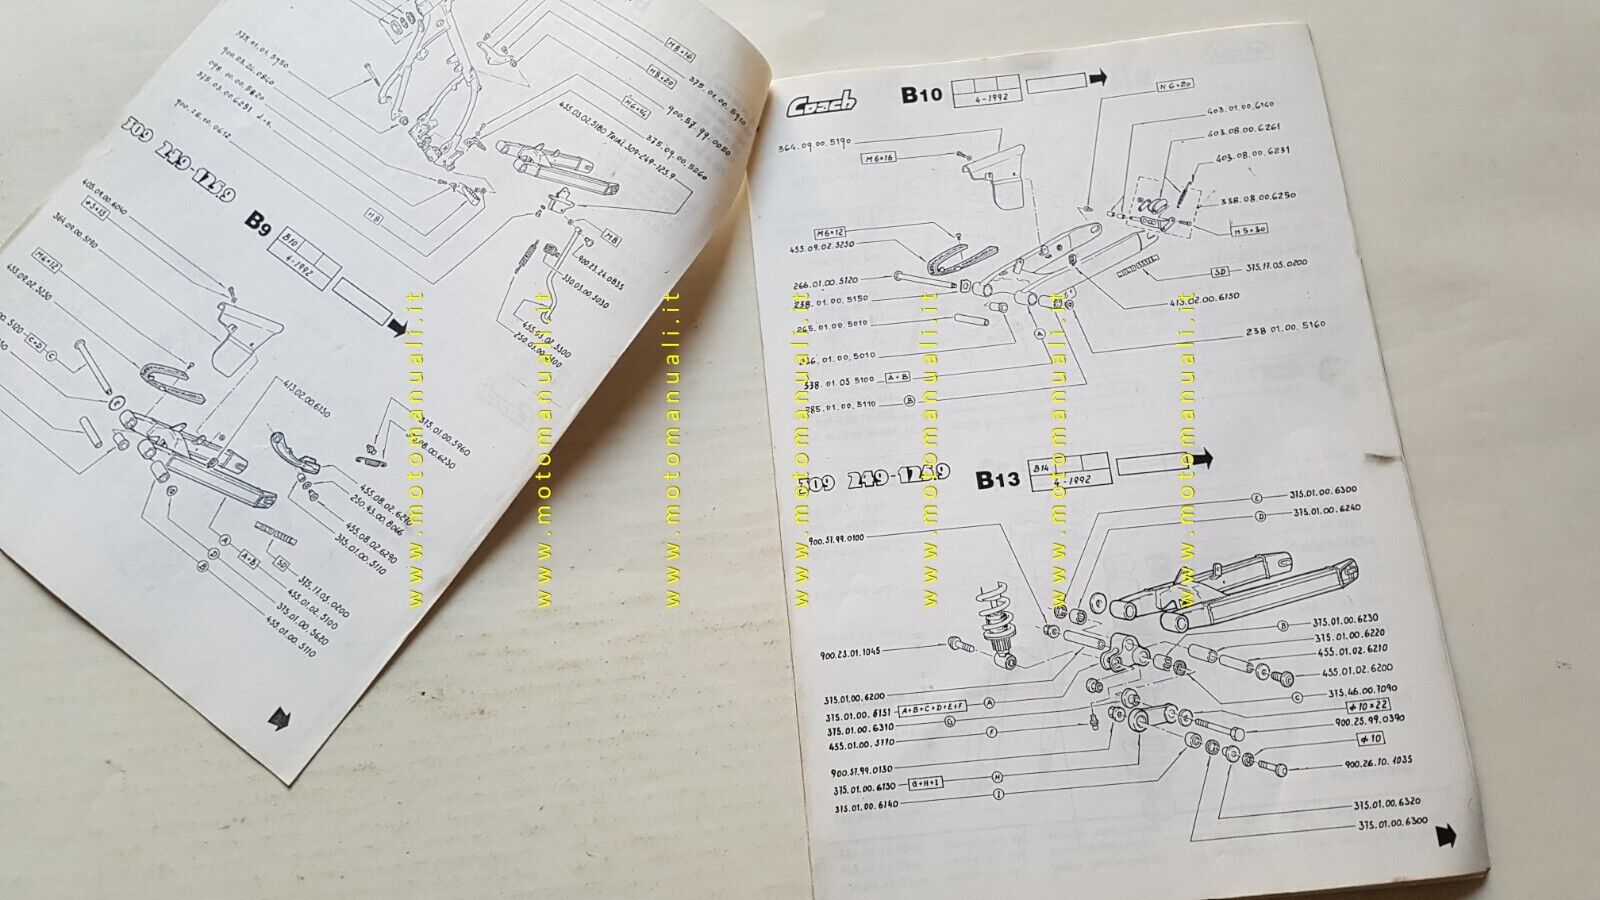 375.01.01.5950
900.23.01.0840
098.10.00.5820
375.03.00.6251 d.x.
900.25.10.0612
M8×16
M8×20
M6×14
375.01.00.5910
900.57.99.0050
375.09.00.5260
455.03.02.5180 TRIAL 309-249-125.9
M8
M8
900.23.24.0835
330.03.00.3030
455.03.02.5300
309 249-125.9
B9
B10
4-1992
405.09.00.6040
364.09.00.5190
M6×12
455.09.02.5250
C+D
C
413.02.00.6150
375.01.00.5960
455.08.02.6290
250.43.00.8066
375.01.00.5110
A
D
B
A+B
SD
375.17.05.0200
455.01.02.5100
375.01.00.5620
455.01.00.5110
Coach
B10
4-1992
364.09.00.5190
M6×16
M6×20
403.01.00.6140
403.08.00.6261
403.08.00.6231
338.08.00.6250
M5×30
M6×12
455.09.02.5250
266.01.00.5120
238.01.00.5150
265.01.00.5010
SD
375.17.05.0200
413.02.00.6150
238.01.00.5160
A
338.01.05.5100
A+B
285.01.00.5110
B
309 249-125.9
B13
B14
4-1992
E
375.01.00.6300
D
375.01.00.6240
900.57.99.0100
900.23.01.1045
B
375.01.00.6230
375.01.00.6220
455.01.02.6210
455.01.02.6200
375.01.00.6200
375.01.00.6151
A+B+C+D+E+F
A
C
375.46.00.7090
375.01.00.6310
G
ϕ10×22
455.01.00.5770
F
900.25.99.0390
900.57.99.0130
ϕ10
375.01.00.6130
G+H+I
H
900.26.10.1035
375.01.00.6140
I
375.01.00.6320
375.01.00.6300
www.motomanuali.it
www.motomanuali.it
www.motomanuali.it
www.motomanuali.it
www.motomanuali.it
www.motomanuali.it
www.motomanuali.it